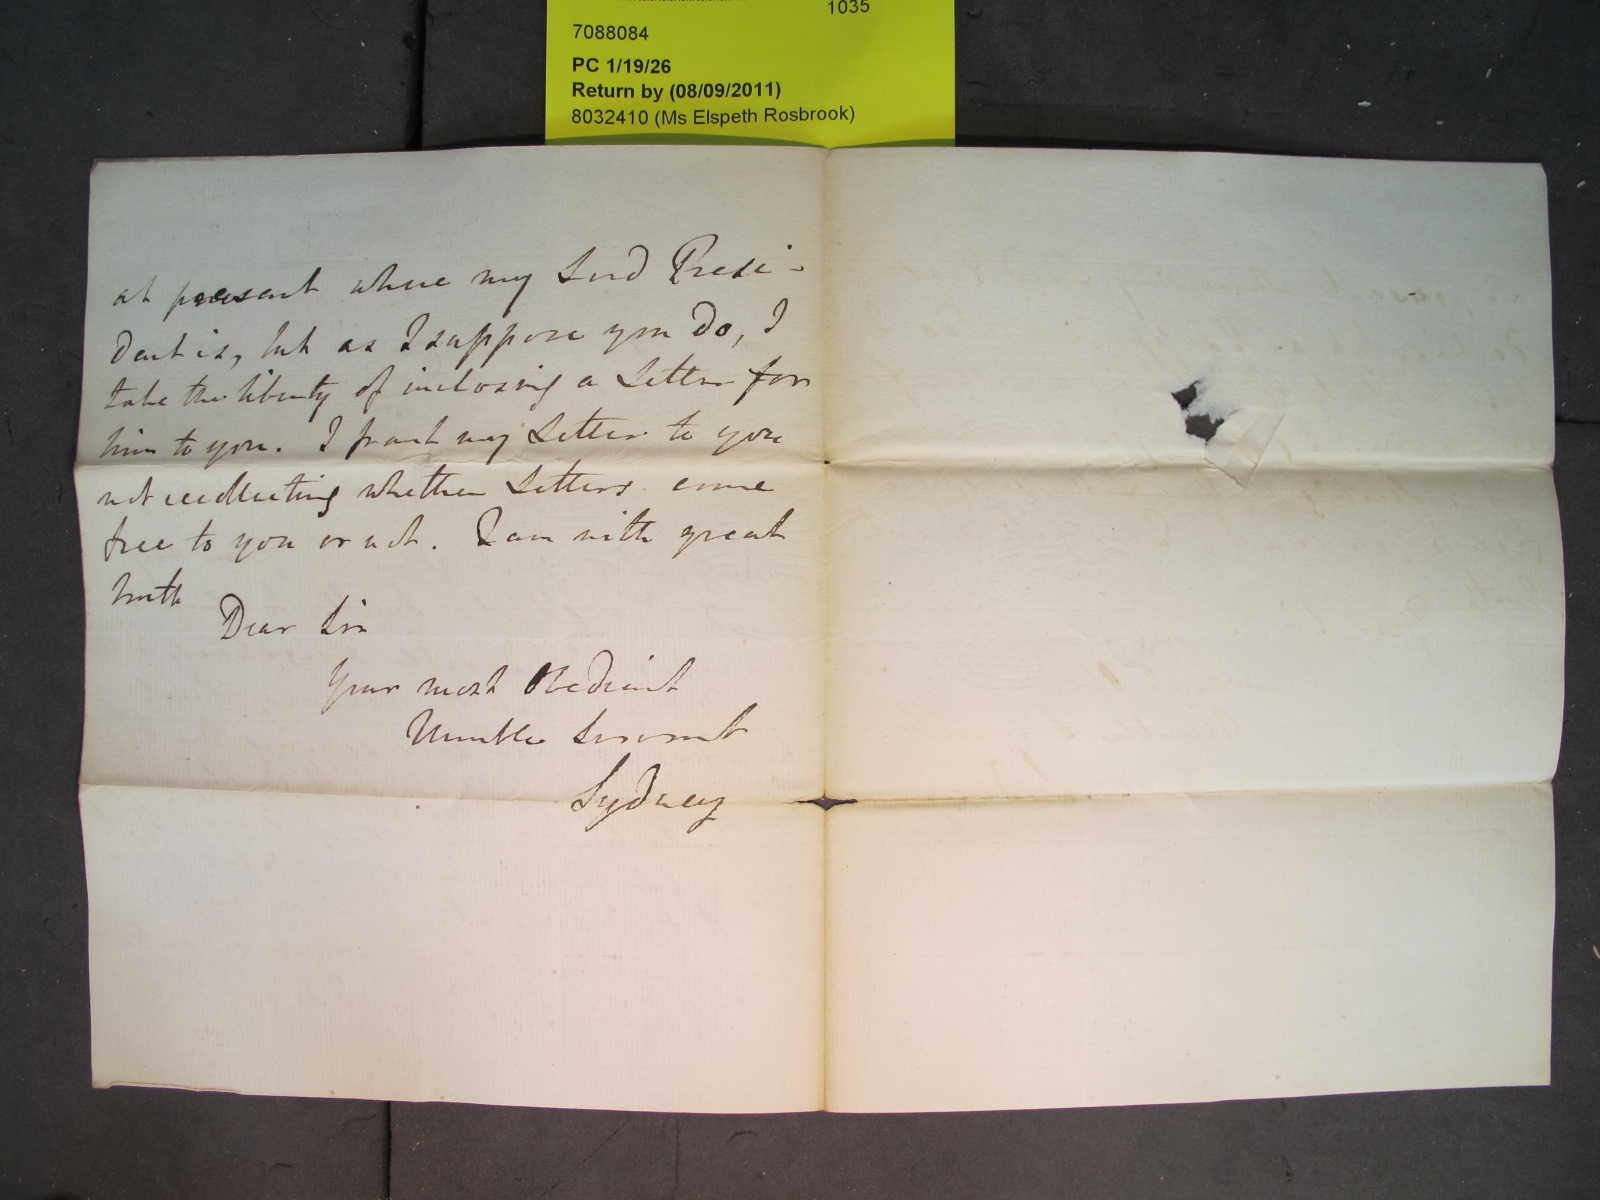 1035
7088084
PC 1/19/26
Return by (08/09/2011)
8032410 (Ms Elspeth Rosbrook)
at present where my Lord Presi-
dent is, but as I suppose you do, I
take the liberty of inclosing a Letter for
him to you. I frank my Letter to you
not recollecting whether Letters come
free to you or not. I am with great
truth
Dear Sir
Your most Obedient
Humble Servant
Sydney